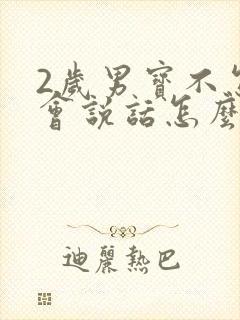 2歲男寶不怎
會說話怎麼
迪麗熱巴